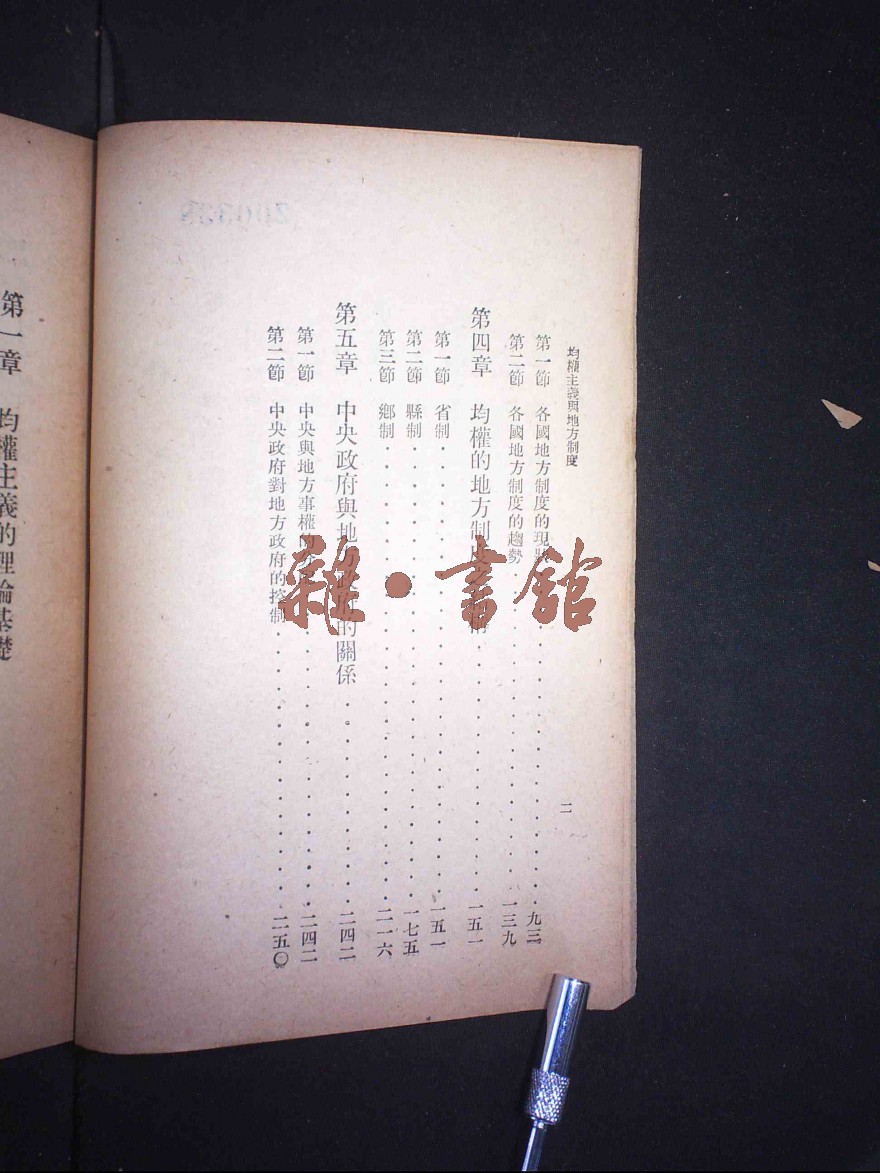 均權主義與地方制度
二
第一節 各國地方制度的現 九三
第二節 各國地方制度的趨勢 一三九
第四章 均權的地方制度 一五一
第一節 省制 一五一
第二節 縣制 一七五
第三節 鄉制 二一六
第五章 中央政府與地方政府的關係 二四二
第一節 中央與地方事權的 二四二
第二節 中央政府對地方政府的控制 二五〇
第一章 均權主義的理論基礎
雜·書館